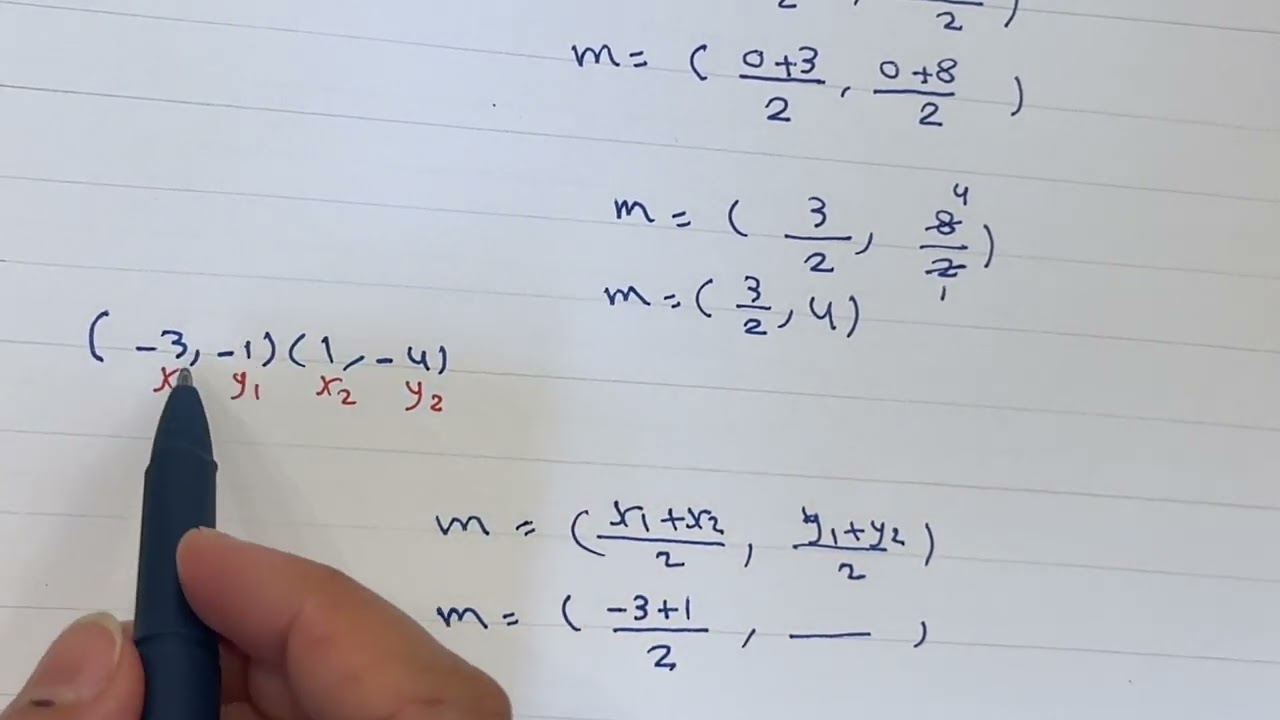 2 , 2 )
m = ( 0+3/2 , 0+8/2 )
m = ( 3/2 , 8/2 ) 4 1
m = ( 3/2 , 4 )
( -3, -1) (1, -4)
x y1 x2 y2
m = ( x1+x2/2 , y1+y2/2 )
m = ( -3+1/2 , — )